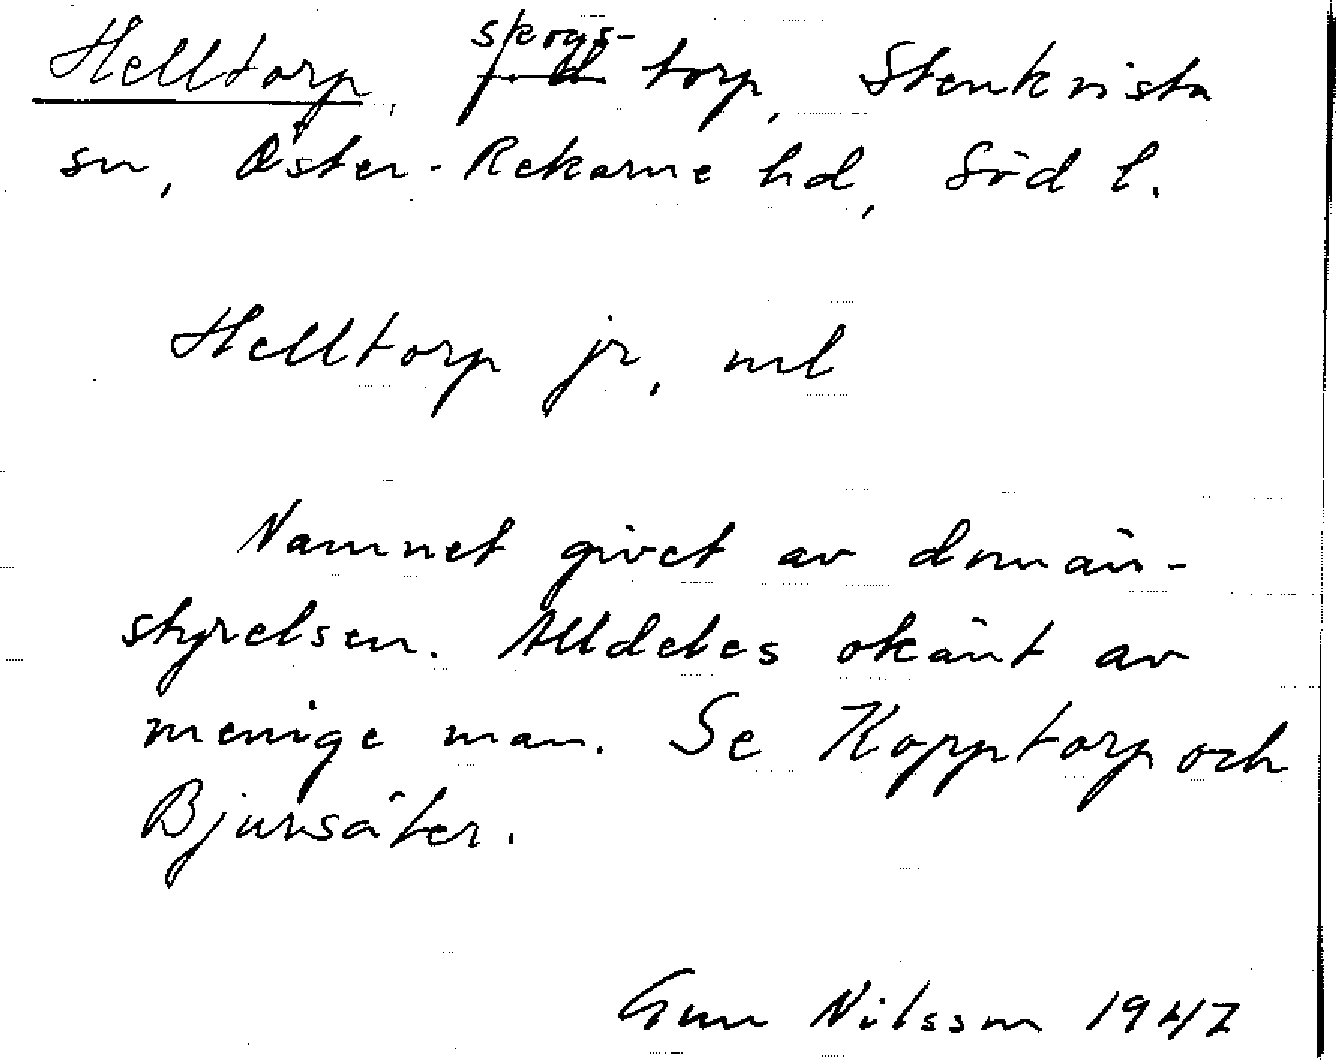 Helltorp, skogs-torp, Stenkvista
sn, Öster-Rekarne hd, Söd l.
Helltorp jr, ml
Namnet givet av domän-
styrelsen. Alldeles okänt av
menige man. Se Kopptorp och
Bjursäter.
Gun Nilsson 1947